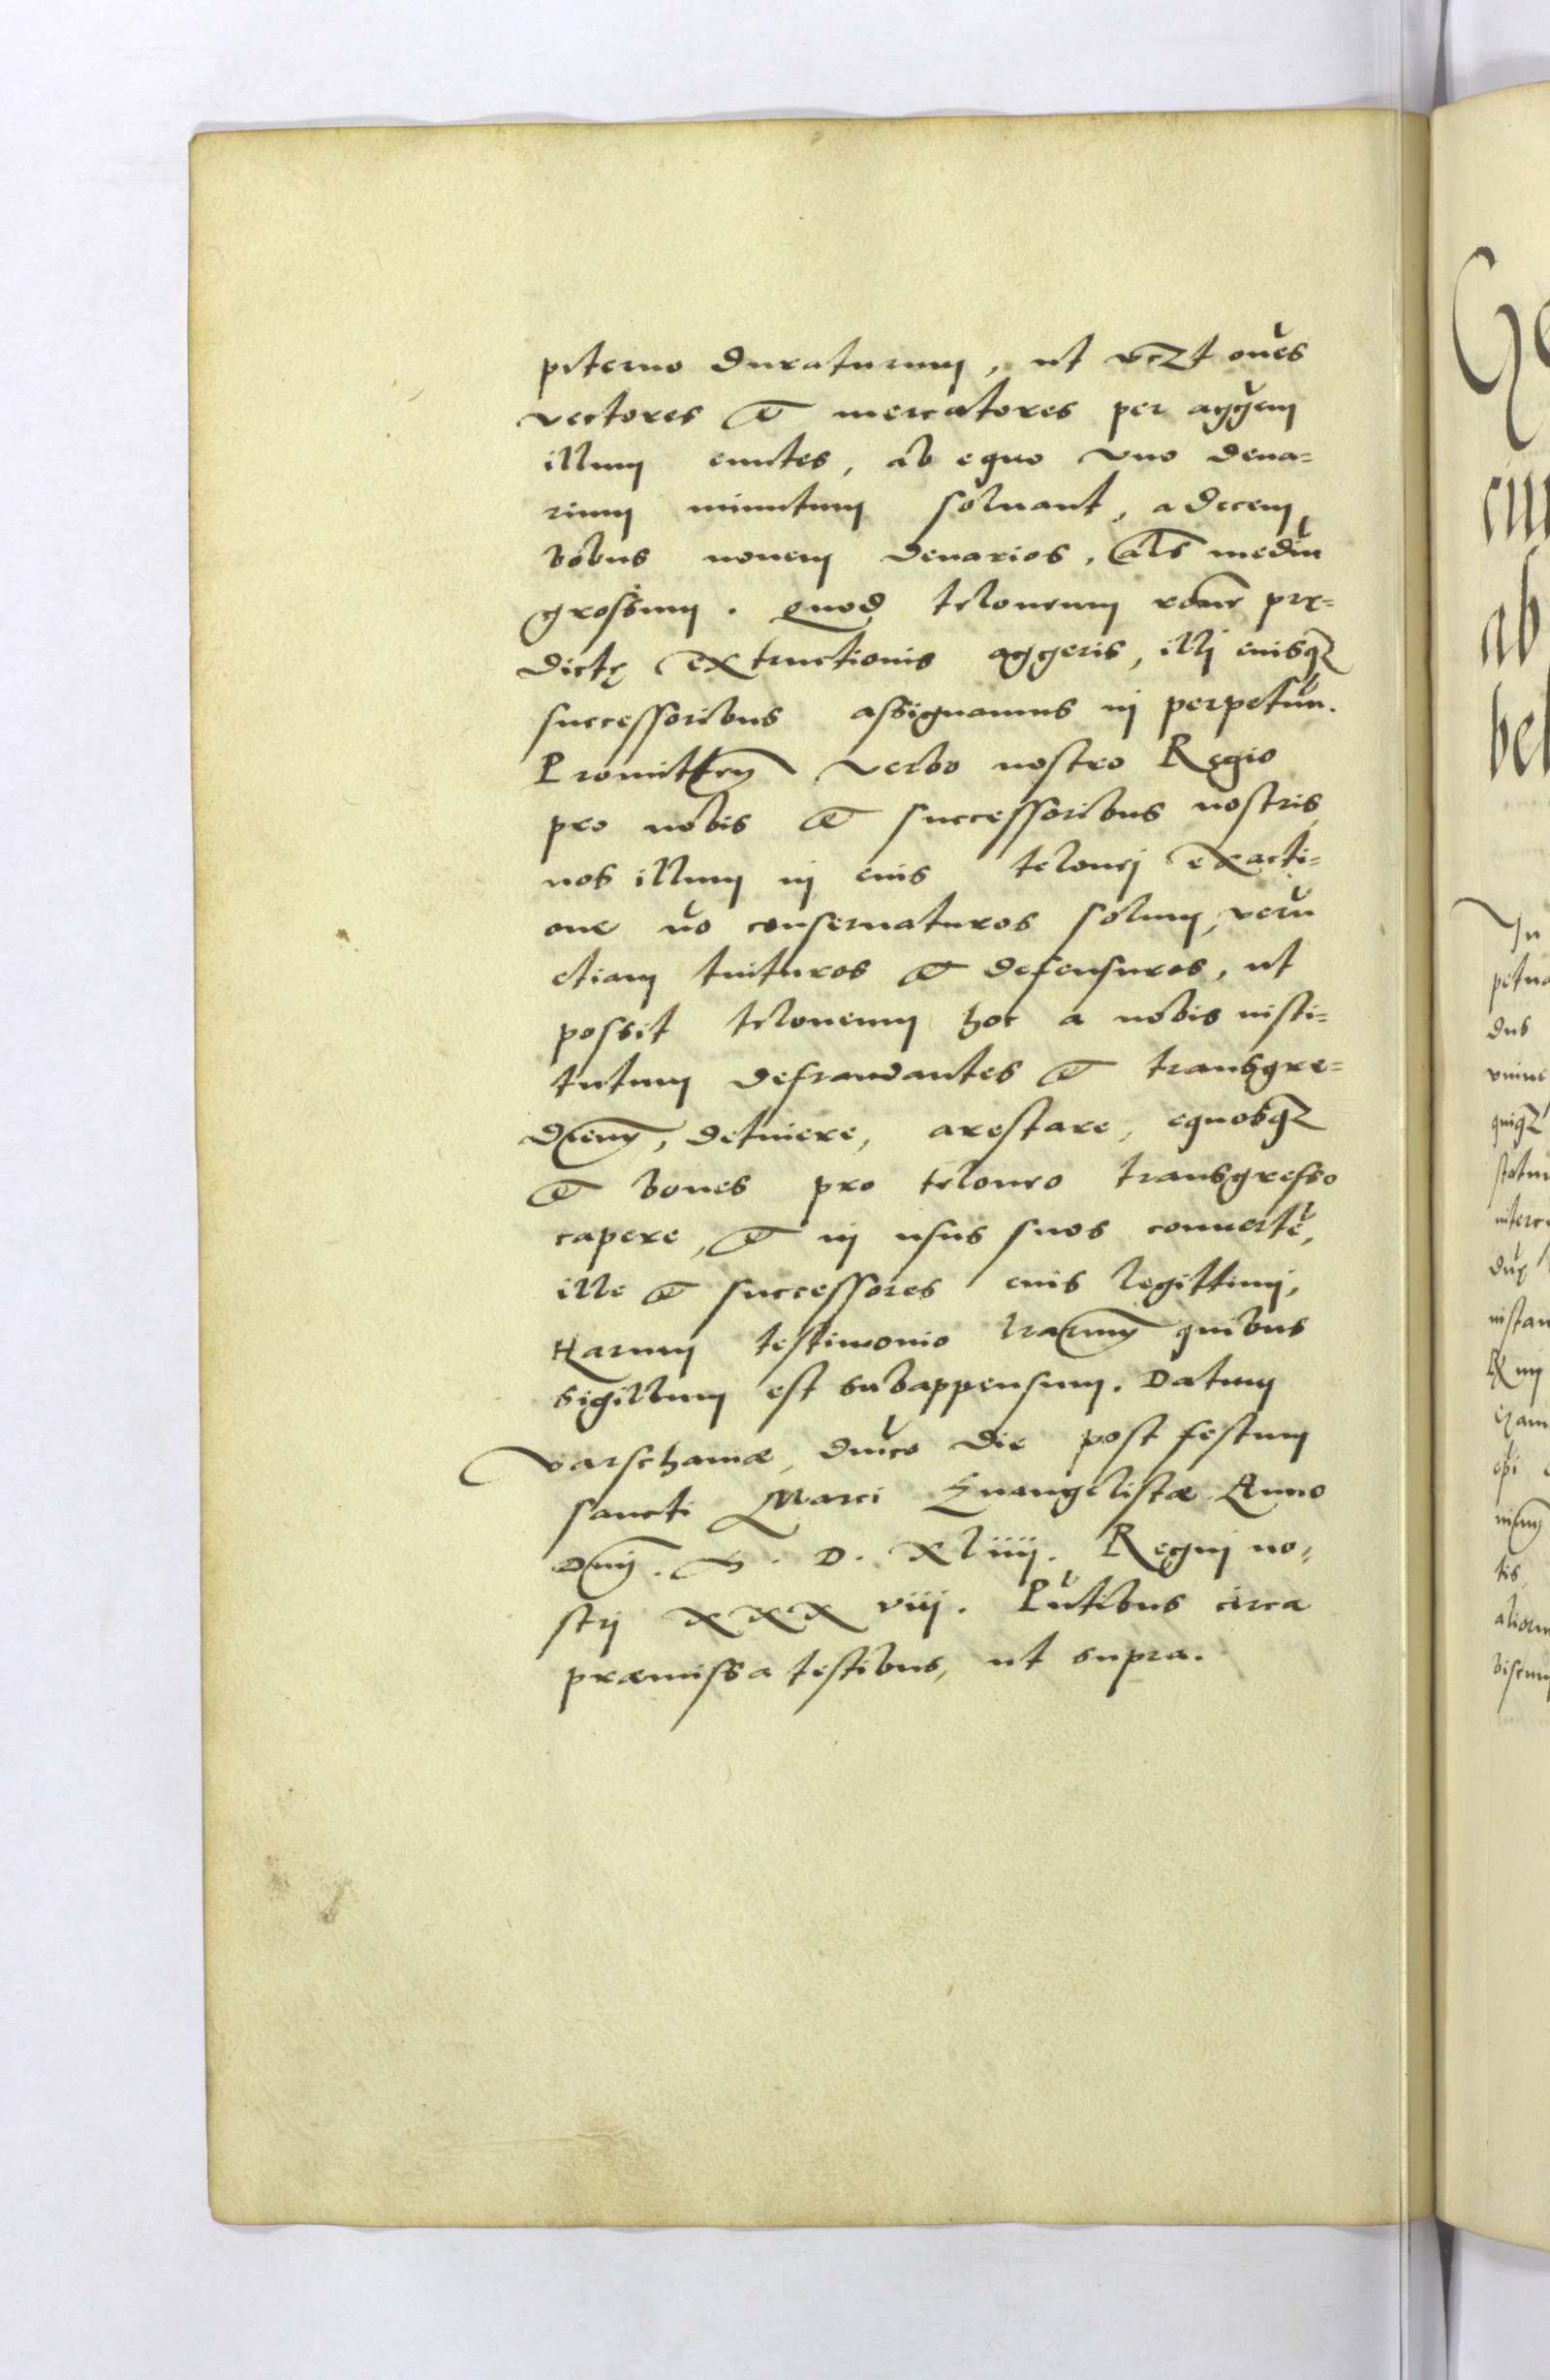 piterno duraturum, ut vczt om̃es
vectores & mercatores per aggem̃
illum euntes, ab equo vno dena=
rium minutum soluant, a decem
bobus nouem denarios, als mediũ
grossum. Quod teloneum rõne prę=
dictę extructionis aggeris, illj eiusqȝ
successoribus assignamus in perpetuũ.
Promitten verbo nostro Regio
pro nobis & successoribus nostris
nos illum in eius telonej exacti=
one nõ conseruaturos solum, verũ
etiam tuituros & defensuros, ut
possit teloneum hoc a nobis insti=
tutum defraudantes & transgre=
dien, detinere, arestare, equosqȝ
& boues pro teloneo transgresso
capere, & in usus suos conuertẽ,
ille & successores eius legittimj,
Harum testimonio lrarum quibus
sigillum est subappensum. Datum
Varschauiæ, dnico die post festum
sancti Marci Euangelistæ Anno
Dnj. M. D. xliiij. Regnj no=
strj xxx viij. Pntibus circa
præmissa testibus, ut supra.